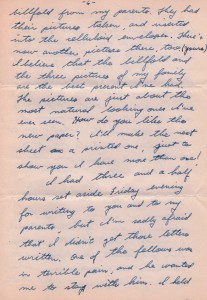 -6-
billfold from my parents. They had
their pictures taken, and inserted
into the celluloid envelopes. There's
now another picture there, too. (yours)
I believe that the billfold and
the three pictures of my family
are the best present I've had.
The pictures are just about the
most natural looking ones I've
ever seen. How do you like the
new paper? I'll make the next
sheet on a printed one, just to
show you I have more than one!
I had three and a half
hours set aside Friday evening
for writing to you and to my
parents, but I'm sadly afraid
that I didn't get those letters
written. One of the fellows was
in terrible pain, and he wanted
me to stay with him. I held